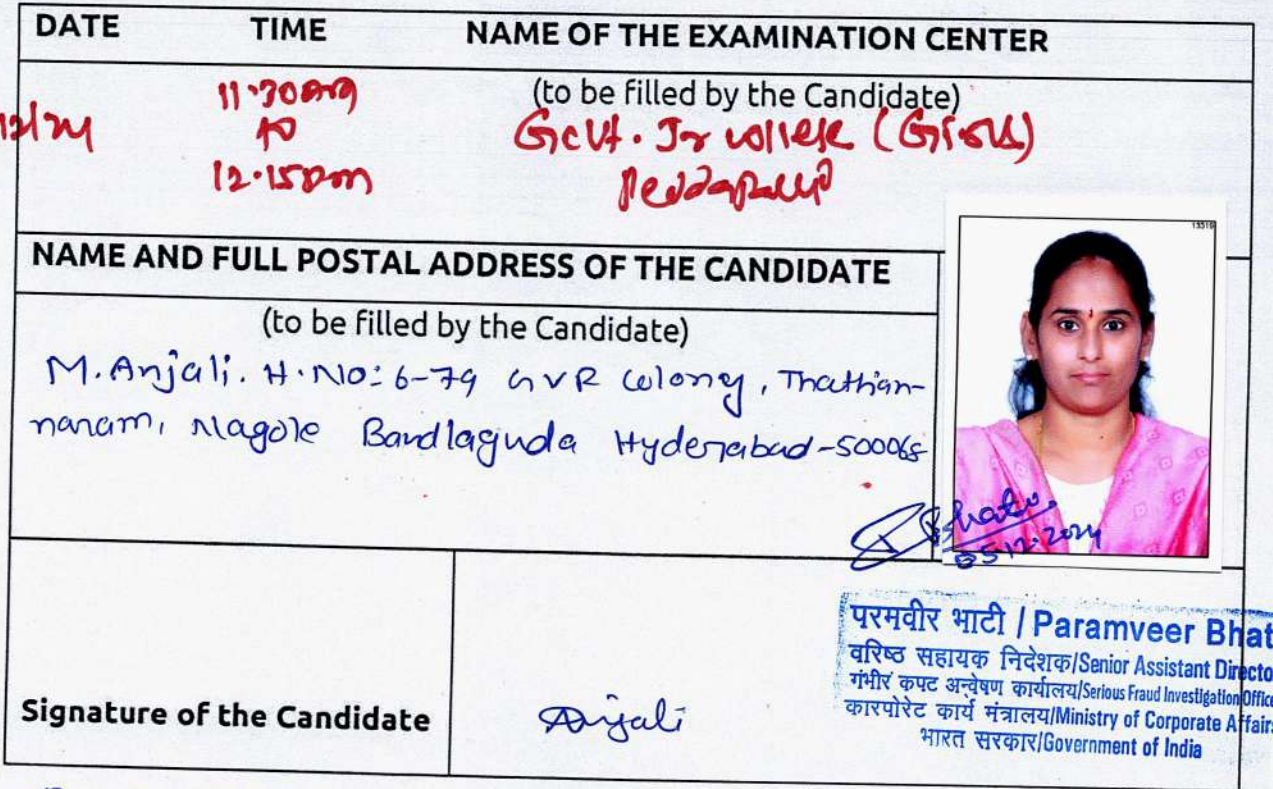 DATE TIME NAME OF THE EXAMINATION CENTER
(to be filled by the Candidate)
12/24 11.30am to 12.15pm
Govt. Jr college (Girls)
Peddapalli
NAME AND FULL POSTAL ADDRESS OF THE CANDIDATE
(to be filled by the Candidate)
M. Anjali. H.NO: 6-79 GVR Colony, Thathian-
naram, Nagole Bandlaguda Hyderabad-500068
13519
05.12.2024
परमवीर भाटी / Paramveer Bhat
वरिष्ठ सहायक निदेशक/Senior Assistant Directo
गंभीर कपट अन्वेषण कार्यालय/Serious Fraud Investigation Office
कारपोरेट कार्य मंत्रालय/Ministry of Corporate Affairs
भारत सरकार/Government of India
Signature of the Candidate
Anjali